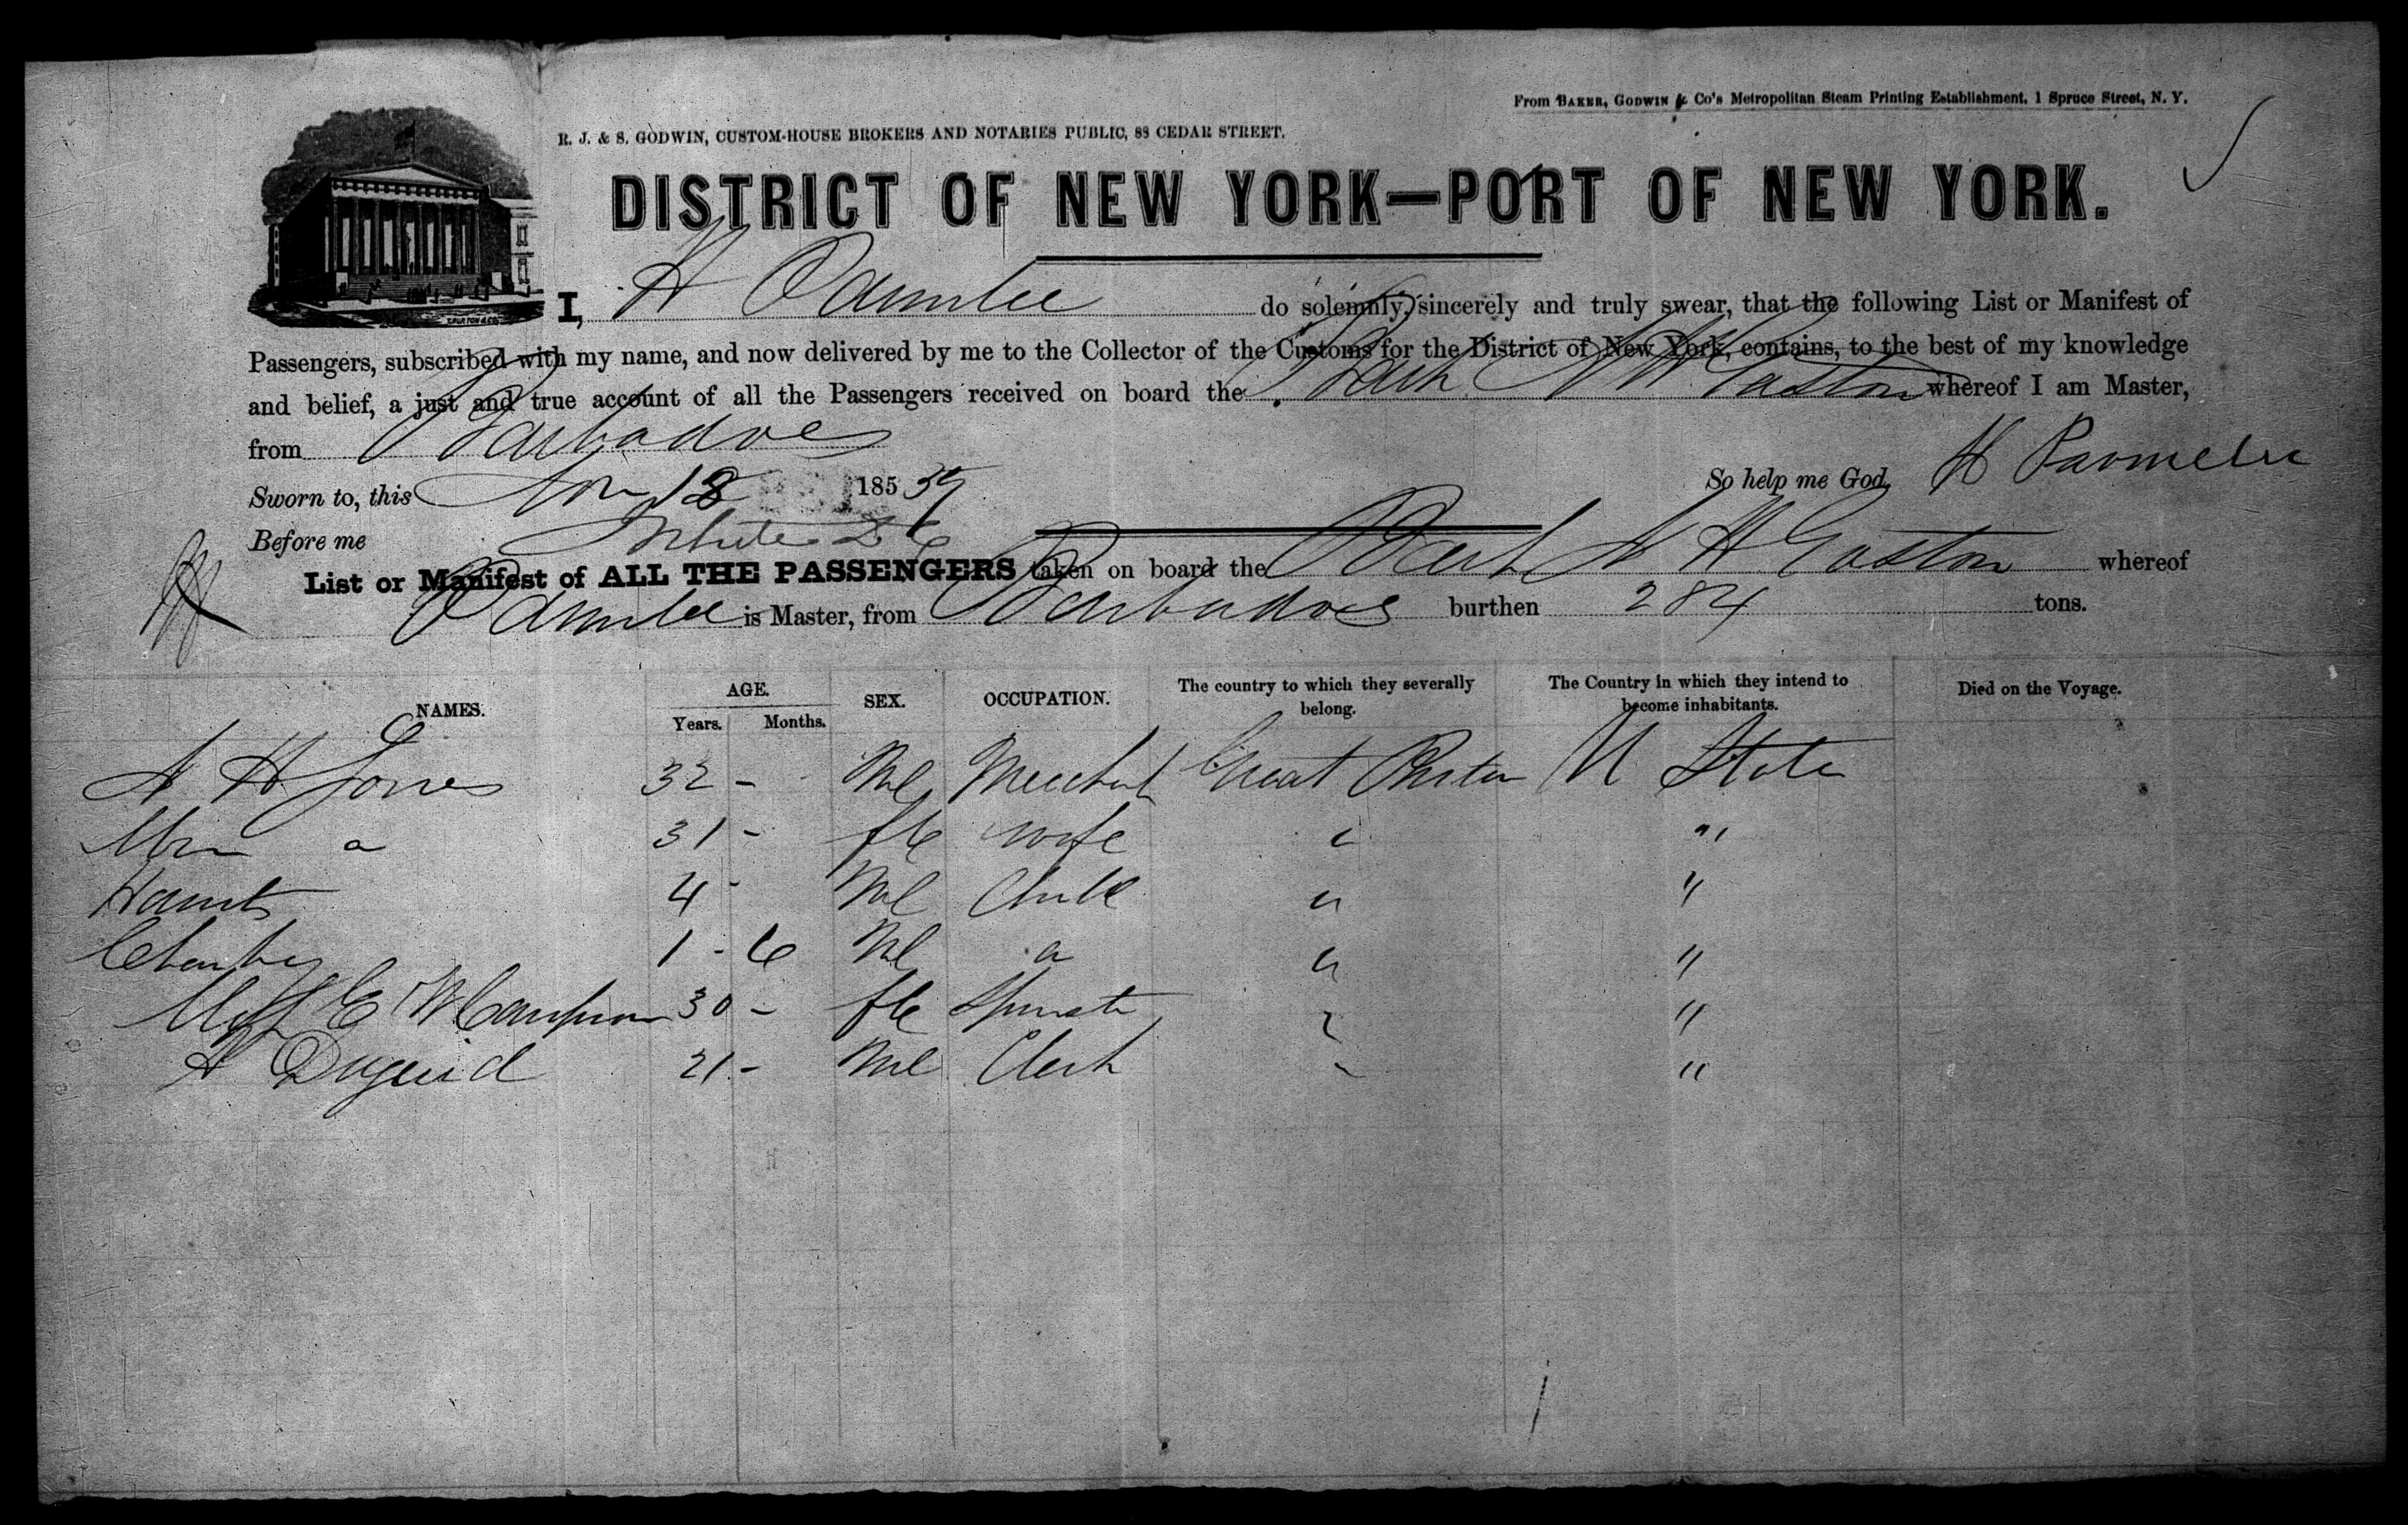 From BAKER, GODWIN & Co's Metropolitan Steam Printing Establishment, 1 Spruce Street, N. Y.
R. J. & S. GODWIN, CUSTOM-HOUSE BROKERS AND NOTARIES PUBLIC, 88 CEDAR STREET.
DISTRICT OF NEW YORK—PORT OF NEW YORK.
I, H Parmlee do solemnly, sincerely and truly swear, that the following List or Manifest of
Passengers, subscribed with my name, and now delivered by me to the Collector of the Customs for the District of New York, contains, to the best of my knowledge
and belief, a just and true account of all the Passengers received on board the Bark N H Gaston whereof I am Master,
from Barbadoes
So help me God, H Parmelee
Sworn to, this Nov 18 185
Before me
List or Manifest of ALL THE PASSENGERS taken on board the Bark N H Gaston whereof
Parmlee is Master, from Barbadoes burthen 284 tons.
NAMES. AGE. Years. Months. SEX. OCCUPATION. The country to which they severally belong. The Country in which they intend to become inhabitants. Died on the Voyage.
A H Jones 32 - Ml Merchant Great Britain U State
Mrs " 31 - fle wife " "
4 - Ml Child " "
Charles 1 - 6 Ml " " "
Miss E W 30 - fle Spinster " "
A Duguid 21 - Ml Clerk " "